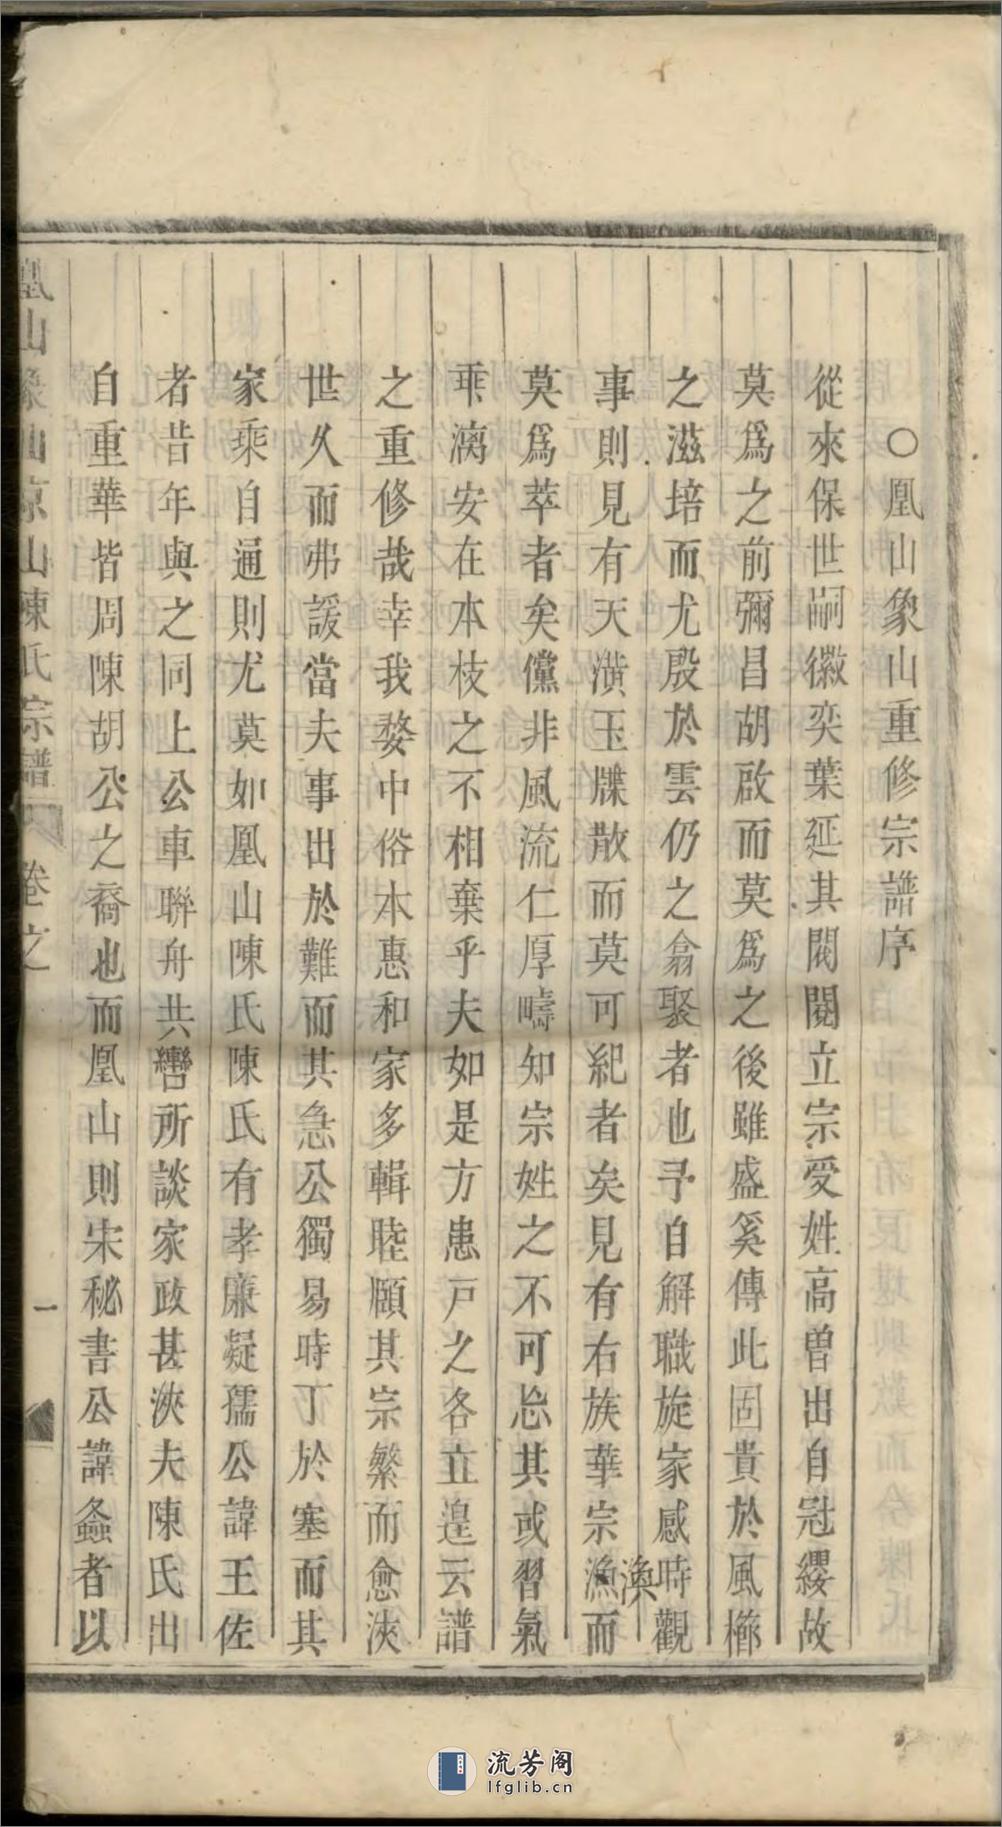 ○凰山象山重修宗譜序
從來保世嗣徽奕葉延其閥閱立宗受姓高曾出自冠纓故
莫爲之前彌昌胡啟而莫爲之後雖盛奚傳此固貴於風櫛
之滋培而尤殷於雲仍之翕聚者也予自解職旋家感時觀
事則見有天潢玉牒散而莫可紀者矣見有右族華宗漁而
渙
莫爲萃者矣儻非風流仁厚疇知宗姓之不可忽其或習氣
乖漓安在本枝之不相棄乎夫如是方患戸之各立遑云譜
之重修哉幸我婺中俗本惠和家多輯睦願其宗繁而愈浹
世久而弗諼當夫事出於難而其急公獨易時丁於塞而其
家乘自通則尤莫如凰山陳氏陳氏有孝廉凝孺公諱王佐
者昔年與之同上公車聯舟共轡所談家政甚浹夫陳氏出
自重華皆周陳胡公之裔也而凰山則宋秘書公諱螽者以
凰山象山京山陳氏宗譜
卷之
一
流芳阁
lfglib.cn